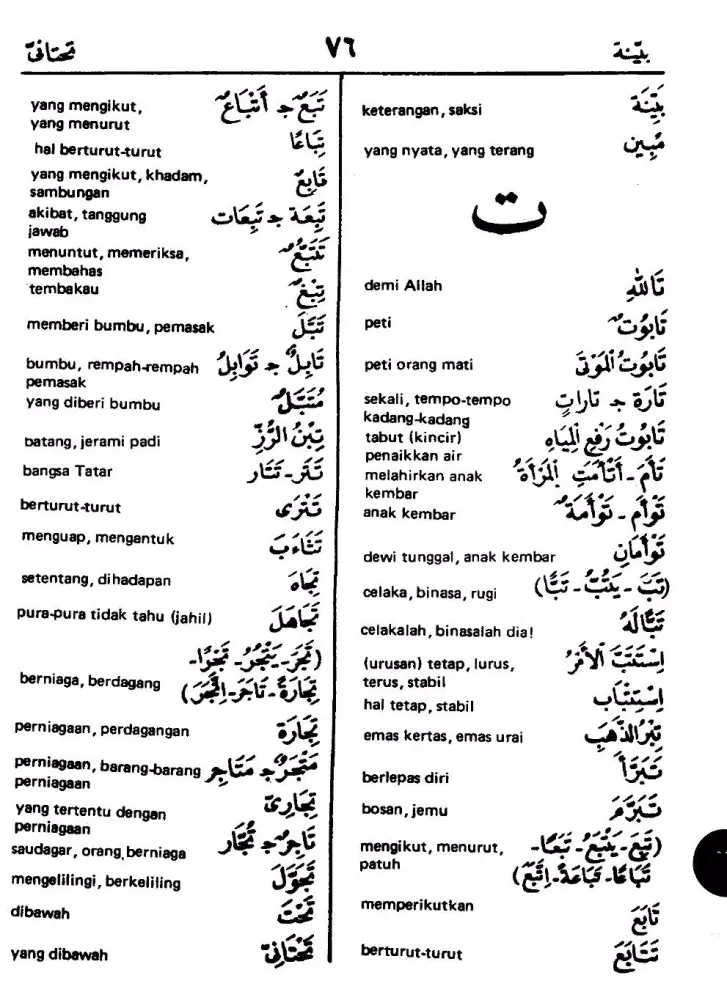 بيّنة
٧٦
تحتانيّ
بَيِّنَة
keterangan, saksi
مُبِين
yang nyata, yang terang
ت
تَاللهِ
demi Allah
تَابُوتٌ
peti
تَابُوتُ الْمَوْتَى
peti orang mati
تَارَةً ج تَارَاتٍ
sekali, tempo-tempo
kadang-kadang
تَابُوتُ رَفْعِ الْمِيَاهِ
tabut (kincir)
penaikkan air
تَأَمَ - أَتْأَمَتِ الْمَرْأَةُ
melahirkan anak
kembar
تَوْأَم - تَوْأَمَةٌ
anak kembar
تَوْأَمَانِ
dewi tunggal, anak kembar
(تَبَّ - يَتُبُّ - تَبًّا)
celaka, binasa, rugi
تَبًّا لَهُ
celakalah, binasalah dia!
اِسْتَتَبَّ الْأَمْرُ
(urusan) tetap, lurus,
terus, stabil
اِسْتِتْبَاب
hal tetap, stabil
تِبْرُ الذَّهَبِ
emas kertas, emas urai
تَبَرَّأَ
berlepas diri
تَبَرَّمَ
bosan, jemu
(تَبِعَ - يَتْبَعُ - تَبَعًا -
mengikut, menurut,
تَبَاعًا - تَبَاعَةً - اِتَّبَعَ)
patuh
تَابَعَ
memperikutkan
تَتَابَعَ
berturut-turut
تَبَعٌ ج أَتْبَاعٌ
yang mengikut,
yang menurut
تِبَاعًا
hal berturut-turut
تَابِعٌ
yang mengikut, khadam,
sambungan
تَبِعَة ج تَبِعَات
akibat, tanggung
jawab
تَتَبُّعٌ
menuntut, memeriksa,
membahas
تِبْغٌ
tembakau
تَبَّلَ
memberi bumbu, pemasak
تَابِلٌ ج تَوَابِلُ
bumbu, rempah-rempah
pemasak
مُتَبَّلٌ
yang diberi bumbu
تِبْنُ الرُّزِّ
batang, jerami padi
تَتَر - تَتَار
bangsa Tatar
تَتْرَى
berturut-turut
تَثَاءَبَ
menguap, mengantuk
تِجَاهَ
setentang, dihadapan
تَجَاهَلَ
pura-pura tidak tahu (jahil)
(تَجَرَ - يَتْجُرُ - تَجْرًا -
تِجَارَةً - تَاجَرَ - اِتَّجَرَ)
berniaga, berdagang
تِجَارَة
perniagaan, perdagangan
مَتْجَرٌ ج مَتَاجِر
perniagaan, barang-barang
perniagaan
تِجَارِيّ
yang tertentu dengan
perniagaan
تَاجِرٌ ج تُجَّار
saudagar, orang berniaga
تَجَوَّلَ
mengelilingi, berkeliling
تَحْتَ
dibawah
تَحْتَانِيّ
yang dibawah